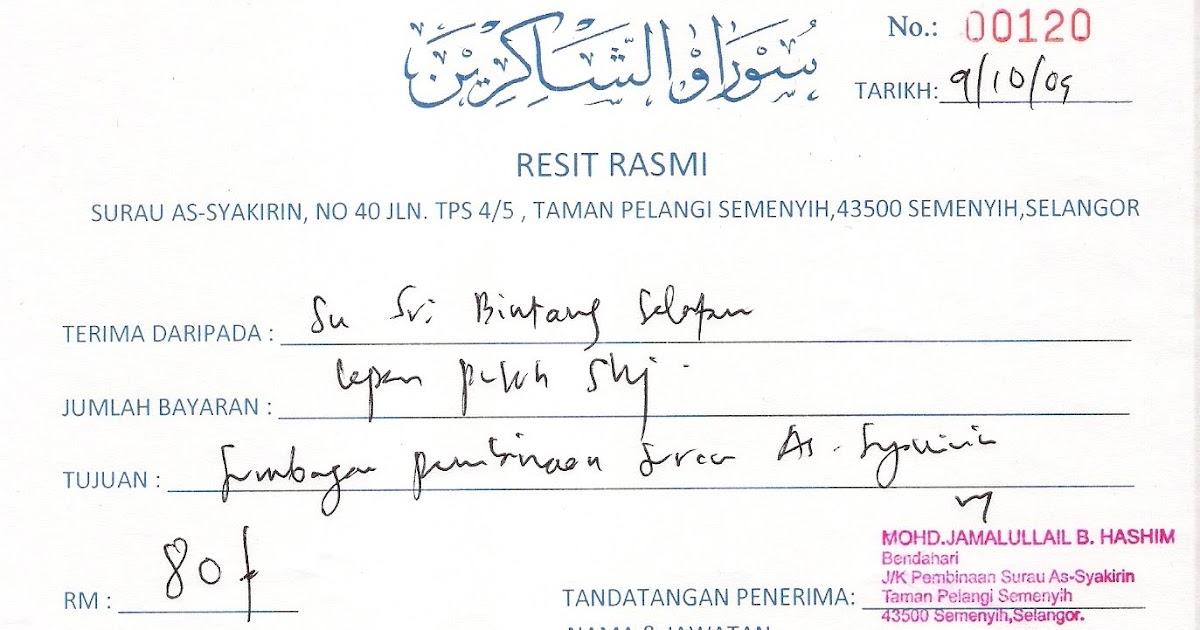 سوراو الشاكرين
No.: 00120
TARIKH: 9/10/09
RESIT RASMI
SURAU AS-SYAKIRIN, NO 40 JLN. TPS 4/5 , TAMAN PELANGI SEMENYIH,43500 SEMENYIH,SELANGOR
TERIMA DARIPADA : Su Sri Bintang Selatan
JUMLAH BAYARAN : lapan puluh shj.
TUJUAN : Sumbangan pembinaan surau As-Syakirin
RM : 80/
TANDATANGAN PENERIMA:
MOHD.JAMALULLAIL B. HASHIM
Bendahari
J/K Pembinaan Surau As-Syakirin
Taman Pelangi Semenyih
43500 Semenyih,Selangor.
NAMA & JAWATAN